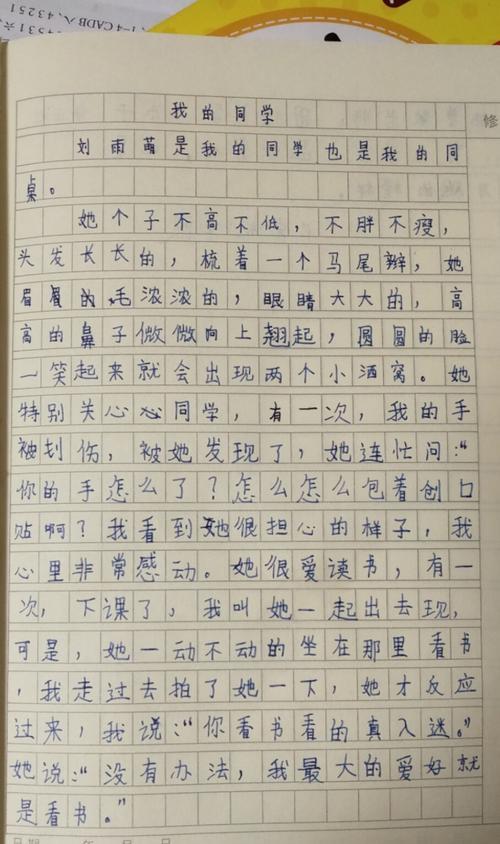 1-4CADB八、43251
我的同学
修
刘雨萌是我的同学也是我的同
桌。
她个子不高不低，不胖不瘦，
头发长长的，梳着一个马尾辫，她
眉眉的毛浓浓的，眼睛大大的，高
高的鼻子微微向上翘起，圆圆的脸
一笑起来就会出现两个小酒窝。她
特别关心心同学，有一次，我的手
被划伤，被她发现了，她连忙问：“
你的手怎么了？怎么怎么包着创口
贴啊？我看到她很担心的样子，我
心里非常感动。她很爱读书，有一
次，下课了，我叫她一起出去现，
可是，她一动不动的坐在那里看书
，我走过去拍了她一下，她才反应
过来，我说：“你看书看的真入迷。”
她说：“没有办法，我最大的爱好就
是看书。”